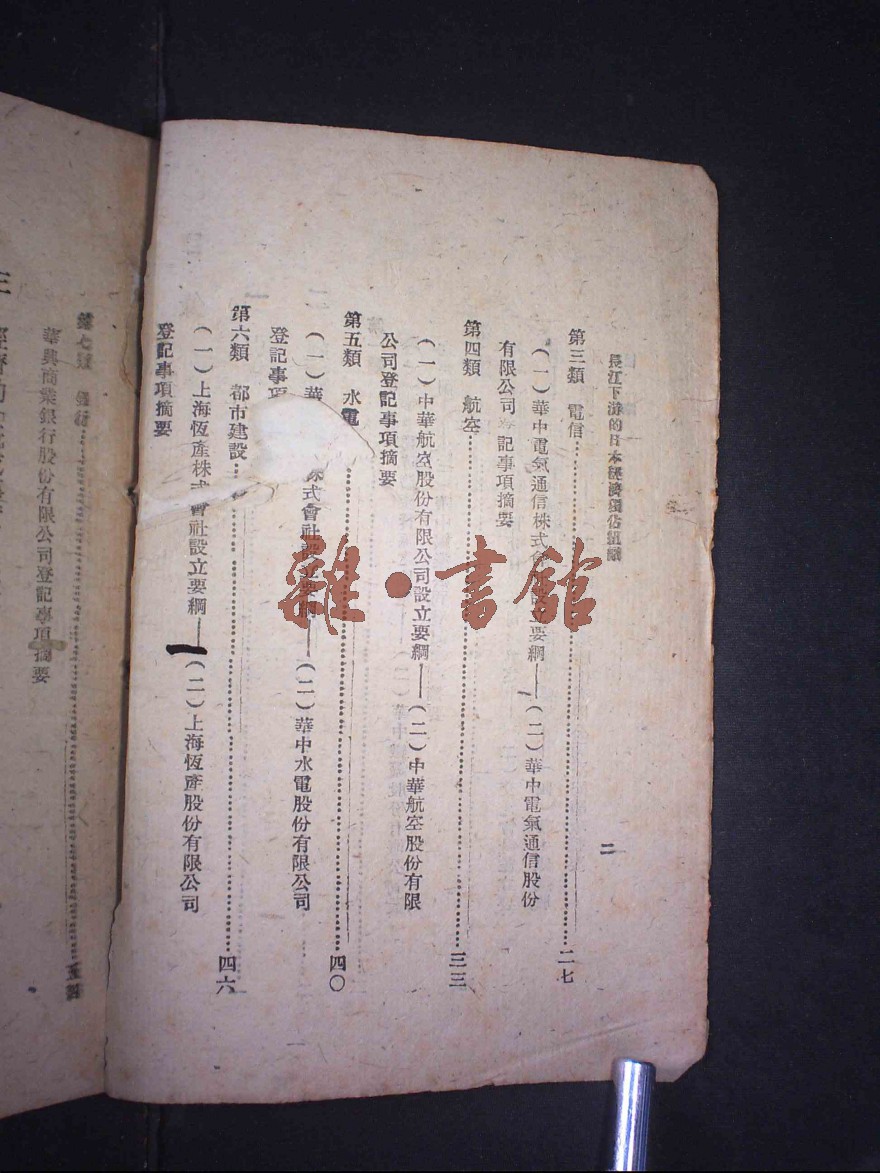 長江下游的日本經濟獨佔組織
二
第三類 電信……二七
(一)華中電氣通信株式會社設立要綱——(二)華中電氣通信股份
有限公司登記事項摘要
第四類 航空……三三
(一)中華航空股份有限公司設立要綱——(二)中華航空股份有限
公司登記事項摘要
第五類 水電……四〇
(一)華 株式會社設立要綱——(二)華中水電股份有限公司
登記事項
第六類 都市建設……四六
(一)上海恆產株式會社設立要綱——(二)上海恆產股份有限公司
登記事項摘要
第七類 銀行……
華興商業銀行股份有限公司登記事項摘要
三
雜·書館